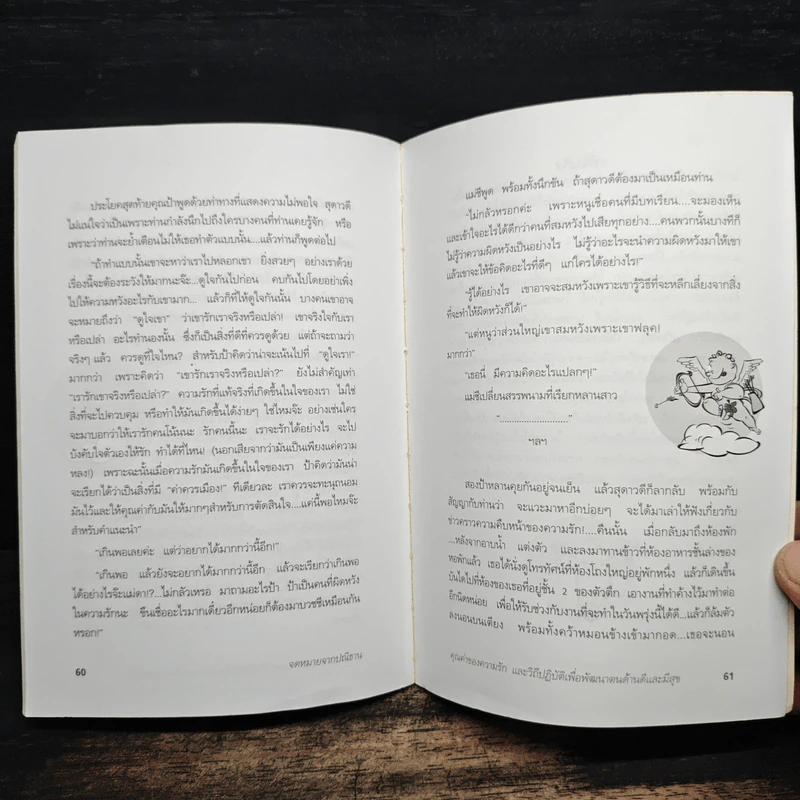 ประโยคสุดท้ายคุณป้าพูดด้วยท่าทางที่แสดงความไม่พอใจ สุดาวดี
ไม่แน่ใจว่าเป็นเพราะท่านกำลังนึกไปถึงใครบางคนที่ท่านเคยรู้จัก หรือ
เพราะว่าท่านจะย้ำเตือนไม่ให้เธอทำตัวแบบนั้น....แล้วท่านก็พูดต่อไป
"ถ้าทำแบบนั้นเขาจะหาว่าเราไปหลอกเขา ยิ่งสวยๆ อย่างเราด้วย
เรื่องนี้จะต้องระวังให้มากนะจ๊ะ...ดูใจกันไปก่อน คบกันไปโดยอย่าเพิ่ง
ไปให้ความหวังอะไรกับเขามาก... แล้วก็ที่ให้ดูใจกันนั้น บางคนเขาอาจ
จะหมายถึงว่า "ดูใจเขา" ว่าเขารักเราจริงหรือเปล่า! เขาจริงใจกับเรา
หรือเปล่า อะไรทำนองนั้น ซึ่งก็เป็นสิ่งที่ดีที่ควรดูด้วย แต่ถ้าจะถามว่า
จริงๆ แล้ว ควรดูที่ใจไหน? สำหรับป้าคิดว่าน่าจะเน้นไปที่ "ดูใจเรา!"
มากกว่า เพราะคิดว่า "เขารักเราจริงหรือเปล่า?" ยังไม่สำคัญเท่า
"เรารักเขาจริงหรือเปล่า?" ความรักที่แท้จริงที่เกิดขึ้นในใจของเรา ไม่ใช่
สิ่งที่จะไปควบคุม หรือทำให้มันเกิดขึ้นได้ง่ายๆ ใช่ไหมจ๊ะ อย่างเช่นใคร
จะมาบอกว่าให้เรารักคนโน้นนะ รักคนนี้นะ เราจะรักได้อย่างไร จะไป
บังคับใจตัวเองให้รัก ทำได้ที่ไหน! (นอกเสียจากว่ามันเป็นเพียงแค่ความ
หลง!) เพราะฉะนั้นเมื่อความรักมันเกิดขึ้นในใจของเรา ป้าคิดว่ามันน่า
จะเรียกได้ว่าเป็นสิ่งที่มี "ค่าควรเมือง!" ทีเดียวละ เราควรจะทะนุถนอม
มันไว้และให้คุณค่ากับมันให้มากๆสำหรับการตัดสินใจ....แค่นี้พอไหมจ๊ะ
สำหรับคำแนะนำ"
"เกินพอเลยค่ะ แต่ว่าอยากได้มากกว่านี้อีก!"
"เกินพอ แล้วยังจะอยากได้มากกว่านี้อีก แล้วจะเรียกว่าเกินพอ
ได้อย่างไรจ๊ะแม่ดา!?...ไม่กลัวเหรอ มาถามอะไรป้า ป้าเป็นคนที่ผิดหวัง
ในความรักนะ ขืนเชื่ออะไรมากเดี๋ยวอีกหน่อยก็ต้องมาบวชชีเหมือนกัน
หรอก!"
60
จดหมายจากปณิธาน
แม่ชีพูด พร้อมทั้งนึกขัน ถ้าสุดาวดีต้องมาเป็นเหมือนท่าน
"ไม่กลัวหรอกค่ะ เพราะหนูเชื่อคนที่มีบทเรียน....จะมองเห็น
และเข้าใจอะไรได้ดีกว่าคนที่สมหวังไปเสียทุกอย่าง....คนพวกนั้นบางทีก็
ไม่รู้ว่าความผิดหวังเป็นอย่างไร ไม่รู้ว่าอะไรจะนำความผิดหวังมาให้เขา
แล้วเขาจะให้ข้อคิดอะไรที่ดีๆ แก่ใครได้อย่างไร!"
"รู้ได้อย่างไร เขาอาจจะสมหวังเพราะเขารู้วิธีที่จะหลีกเลี่ยงจากสิ่ง
ที่จะทำให้ผิดหวังก็ได้!"
"แต่หนูว่าส่วนใหญ่เขาสมหวังเพราะเขาฟลุค!
มากกว่า"
"เธอนี่ มีความคิดอะไรแปลกๆ!"
แม่ชีเปลี่ยนสรรพนามที่เรียกหลานสาว
"..........................."
ฯลฯ
สองป้าหลานคุยกันอยู่จนเย็น แล้วสุดาวดีก็ลากลับ พร้อมกับ
สัญญากับท่านว่า จะแวะมาหาอีกบ่อยๆ จะได้มาเล่าให้ฟังเกี่ยวกับ
ข่าวคราวความคืบหน้าของความรัก!....คืนนั้น เมื่อกลับมาถึงห้องพัก
...หลังจากอาบน้ำ แต่งตัว และลงมาทานข้าวที่ห้องอาหารชั้นล่างของ
หอพักแล้ว เธอได้นั่งดูโทรทัศน์ที่ห้องโถงใหญ่อยู่พักหนึ่ง แล้วก็เดินขึ้น
บันไดไปที่ห้องของเธอที่อยู่ชั้น 2 ของตัวตึก เอางานที่ทำค้างไว้มาทำต่อ
อีกนิดหน่อย เพื่อให้รับช่วงกับงานที่จะทำในวันพรุ่งนี้ได้ดี...แล้วก็ล้มตัว
ลงนอนบนเตียง พร้อมทั้งคว้าหมอนข้างเข้ามากอด...เธอจะนอน
คุณค่าของความรัก และวิถีปฏิบัติเพื่อพัฒนาตนด้านดีและมีสุข
61